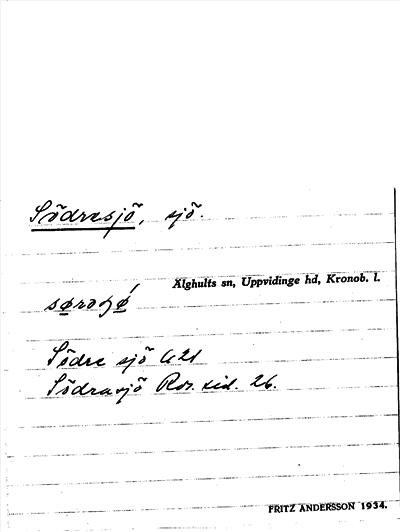 Södresjö, sjö.
Älghults sn, Uppvidinge hd, Kronob. l.
Södre sjö G21
Södrasjö Ros. eid. 26.
FRITZ ANDERSSON 1934.